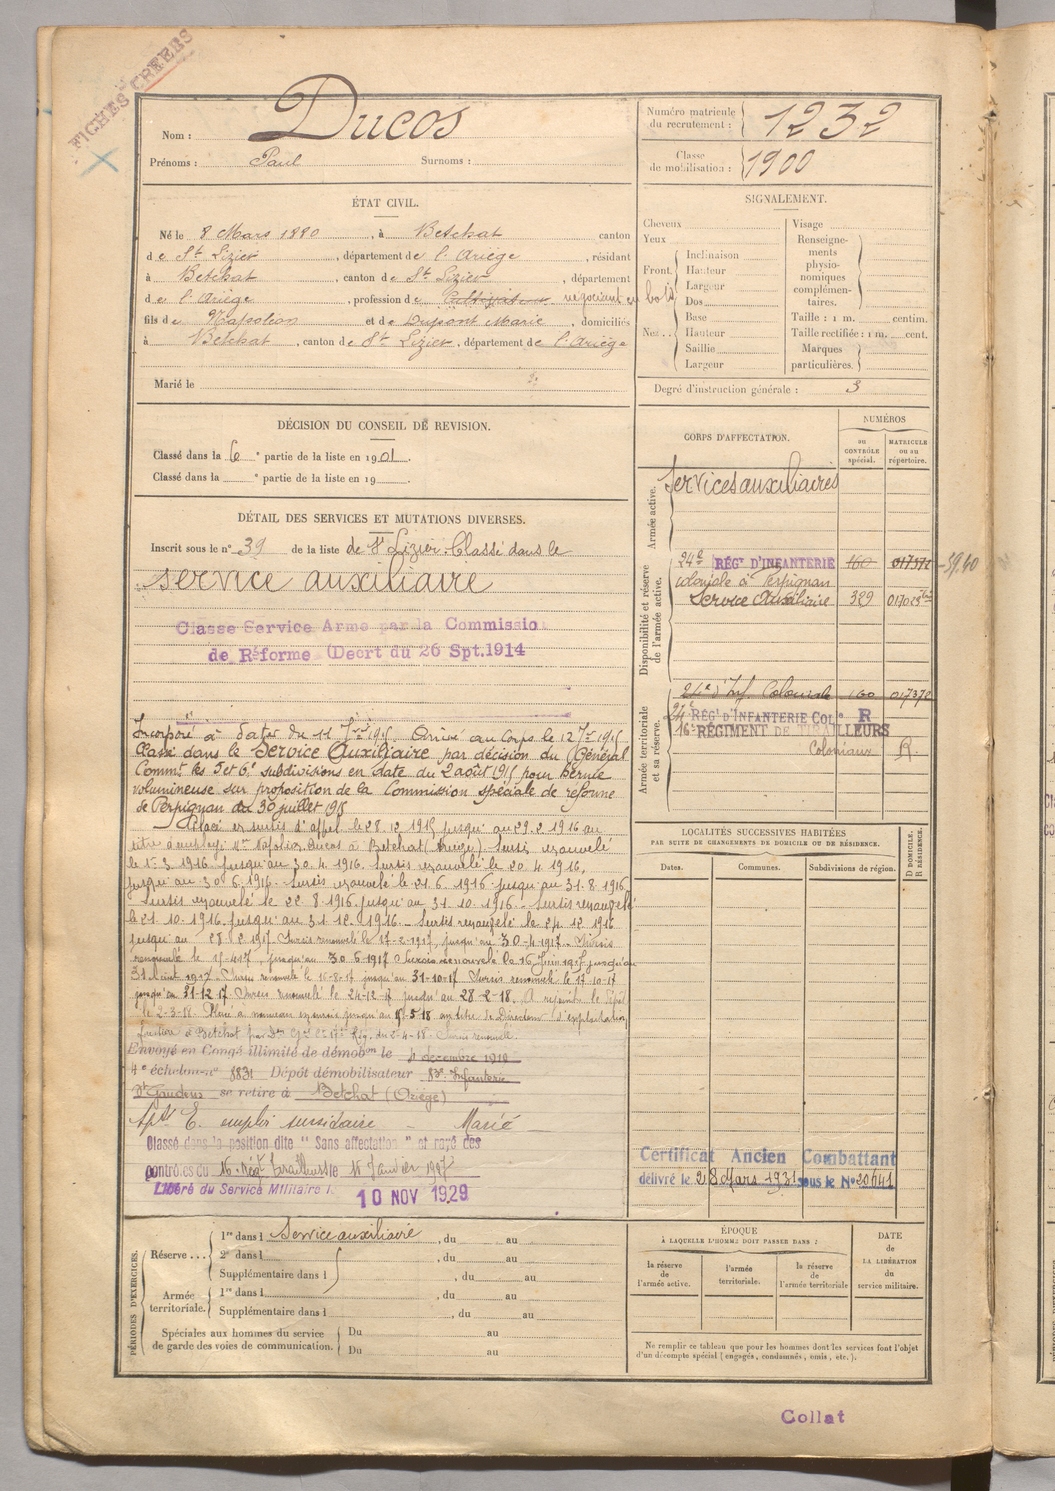 FICHES CRÉÉES
Nom : Ducos
Prénoms : Paul Surnoms :
Numéro matricule du recrutement : 1232
Classe de mobilisation : 1900
ÉTAT CIVIL.
Né le 8 Mars 1880, à Betchat canton
de St Lizier, département de l'Ariège, résidant
à Betchat, canton de St Lizier, département
de l'Ariège, profession de Cultivateur négociant en bois
fils de Napoléon et de Dupont Marie, domiciliés
à Betchat, canton de St Lizier, département de l'Ariège
Marié le
SIGNALEMENT.
Cheveux
Yeux
Front. Inclinaison
Hauteur
Largeur
Nez Dos
Base
Hauteur
Saillie
Largeur
Visage
Renseignements physionomiques complémentaires.
Taille : 1 m. centim.
Taille rectifiée : 1 m. cent.
Marques particulières.
Degré d'instruction générale : 3
DÉCISION DU CONSEIL DE REVISION.
Classé dans la 6e partie de la liste en 1901.
Classé dans la e partie de la liste en 19 .
DÉTAIL DES SERVICES ET MUTATIONS DIVERSES.
Inscrit sous le n° 39 de la liste de St Lizier. Classé dans le
service auxiliaire
Classe Service Arme par la Commissio
de Réforme (Decrt du 26 Spt.1914
Incorporé à dater du 11 7bre 1915. Arrivé au Corps le 12 7bre 1915
Classé dans le Service Auxiliaire par décision du Général
Commt les 5 et 6e subdivisions en date du 2 août 1915 pour hernie
volumineuse sur proposition de la Commission spéciale de réforme
de Perpignan du 30 juillet 1915
Placé en sursis d'appel le 28 12 1915 jusqu'au 29.2.1916 au
titre employé Mr Ducos à Betchat (Ariège) Sursis renouvelé
le 1.3.1916 jusqu'au 30.4.1916. Sursis renouvelé le 20.4.1916,
jusqu'au 30.6.1916. Sursis renouvelé le 21.6.1916 jusqu'au 31.8.1916
Sursis renouvelé le 22.8.1916 jusqu'au 31.10.1916. Sursis renouvelé
le 21.10.1916 jusqu'au 31.12.1916. Sursis renouvelé le 24.12.1916
jusqu'au 28.2.1917. Sursis renouvelé le 17-2-1917, jusqu'au 30-4-1917. Sursis
renouvelé le 15-4-17, jusqu'au 30.6-1917 Sursis renouvelé le 16 Juin 1917 jusqu'au
31 Août 1917. Sursis renouvelé le 16-8-17 jusqu'au 31-10-17 Sursis renouvelé le 17-10-17
jusqu'au 31-12-17. Sursis renouvelé le 24-12-17 jusqu'au 28-2-18. A rejoint le Dépôt
le 2-3-18. Placé à nouveau en sursis jusqu'au 15-5-18 au titre de Directeur d'exploitation
à Betchat du 2-4-18. Sursis renouvelé.
Envoyé en Congé illimité de démobon le décembre 1918
4e échelon n° 8831 Dépôt démobilisateur 83e Infanterie
St Gaudens se retire à Betchat (Ariège)
emploi Marié
Classé dans la position dite " Sans affectation " et rayé des
contrôles du 16 Régt Tirailleurs le Janvier 1927
Libéré du Service Militaire l 10 NOV 1929
CORPS D'AFFECTATION.
NUMÉROS
au CONTRÔLE spécial.
MATRICULE ou au répertoire.
Armée active.
Services auxiliaires
Disponibilité et réserve de l'armée active.
24e RÉGt D'INFANTERIE 160 017372 - 39.40
coloniale à Perpignan
Service Auxiliaire 329 017023
Armée territoriale et sa réserve.
24e d'Inf. Coloniale 160 017372
24e RÉGt D'INFANTERIE COLe R
16e RÉGIMENT DE TIRAILLEURS
Coloniaux R.
LOCALITÉS SUCCESSIVES HABITÉES
PAR SUITE DE CHANGEMENTS DE DOMICILE OU DE RÉSIDENCE.
D DOMICILE. R RÉSIDENCE.
Dates. Communes. Subdivisions de région.
Certificat Ancien Combattant
délivré le 28 Mars 1931 sous le N° 20641
PÉRIODES D'EXERCICES.
Réserve ... 1re dans l Service auxiliaire, du au
2e dans l , du au
Supplémentaire dans l , du au
Armée territoriale. 1re dans l , du au
Supplémentaire dans l , du au
Spéciales aux hommes du service de garde des voies de communication. Du au
Du au
ÉPOQUE
À LAQUELLE L'HOMME DOIT PASSER DANS :
la réserve de l'armée active.
l'armée territoriale.
la réserve de l'armée territoriale
DATE de LA LIBÉRATION du service militaire.
Ne remplir ce tableau que pour les hommes dont les services font l'objet
d'un décompte spécial (engagés, condamnés, omis, etc.).
Collat